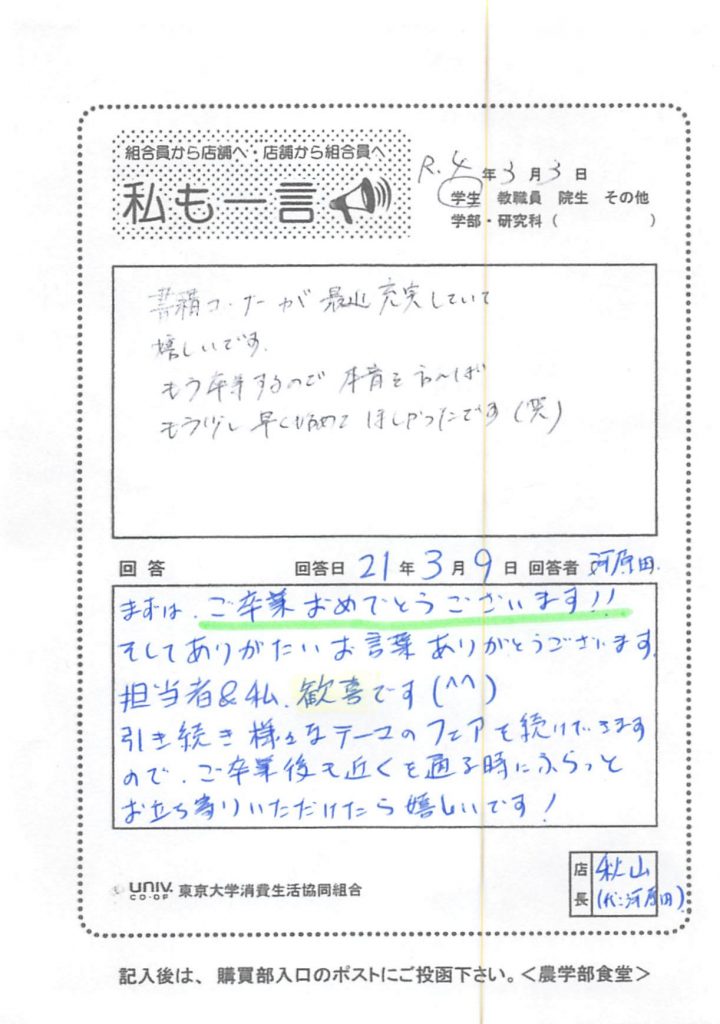 組合員から店舗へ・店舗から組合員へ
私も一言
R.4年3月3日
学生 教職員 院生 その他
学部・研究科( )
書籍コーナーが最近充実していて
嬉しいです.
もう卒業するので 本音を
もう少し早く始めてほしかったです(笑)
回答 回答日 21年3月9日 回答者 河原田.
まずは、ご卒業おめでとうございます!!
そしてありがたいお言葉ありがとうございます.
担当者&私、歓喜です(^^)
引き続き様々なテーマのフェアを続けてきます
ので、ご卒業後も近くを通る時にふらっと
お立ち寄りいただけたら嬉しいです!
店長 秋山
(代:河原田)
UNIV. CO-OP 東京大学消費生活協同組合
記入後は、購買部入口のポストにご投函下さい。<農学部食堂>